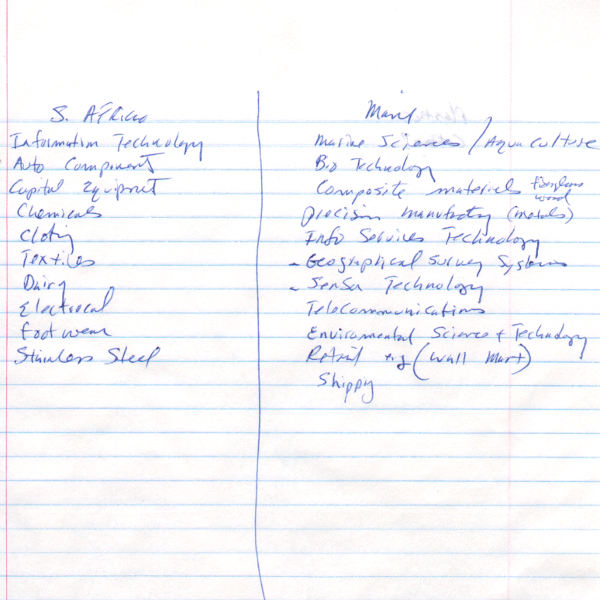 S. Africa
Information Technology
Auto Component
Capital Equipment
Chemicals
Clothing
Textiles
Dairy
Electrical
Footwear
Stainless Steel
Marine Sciences / Aqua Culture
Bio Technology
Composite materials
wood
precision manufacturing (metals)
Info Services Technology
- Geographical Survey Systems
- Sensor Technology
Telecommunications
Enviromental Science + Technology
Retail (Wall Mart)
Shipping